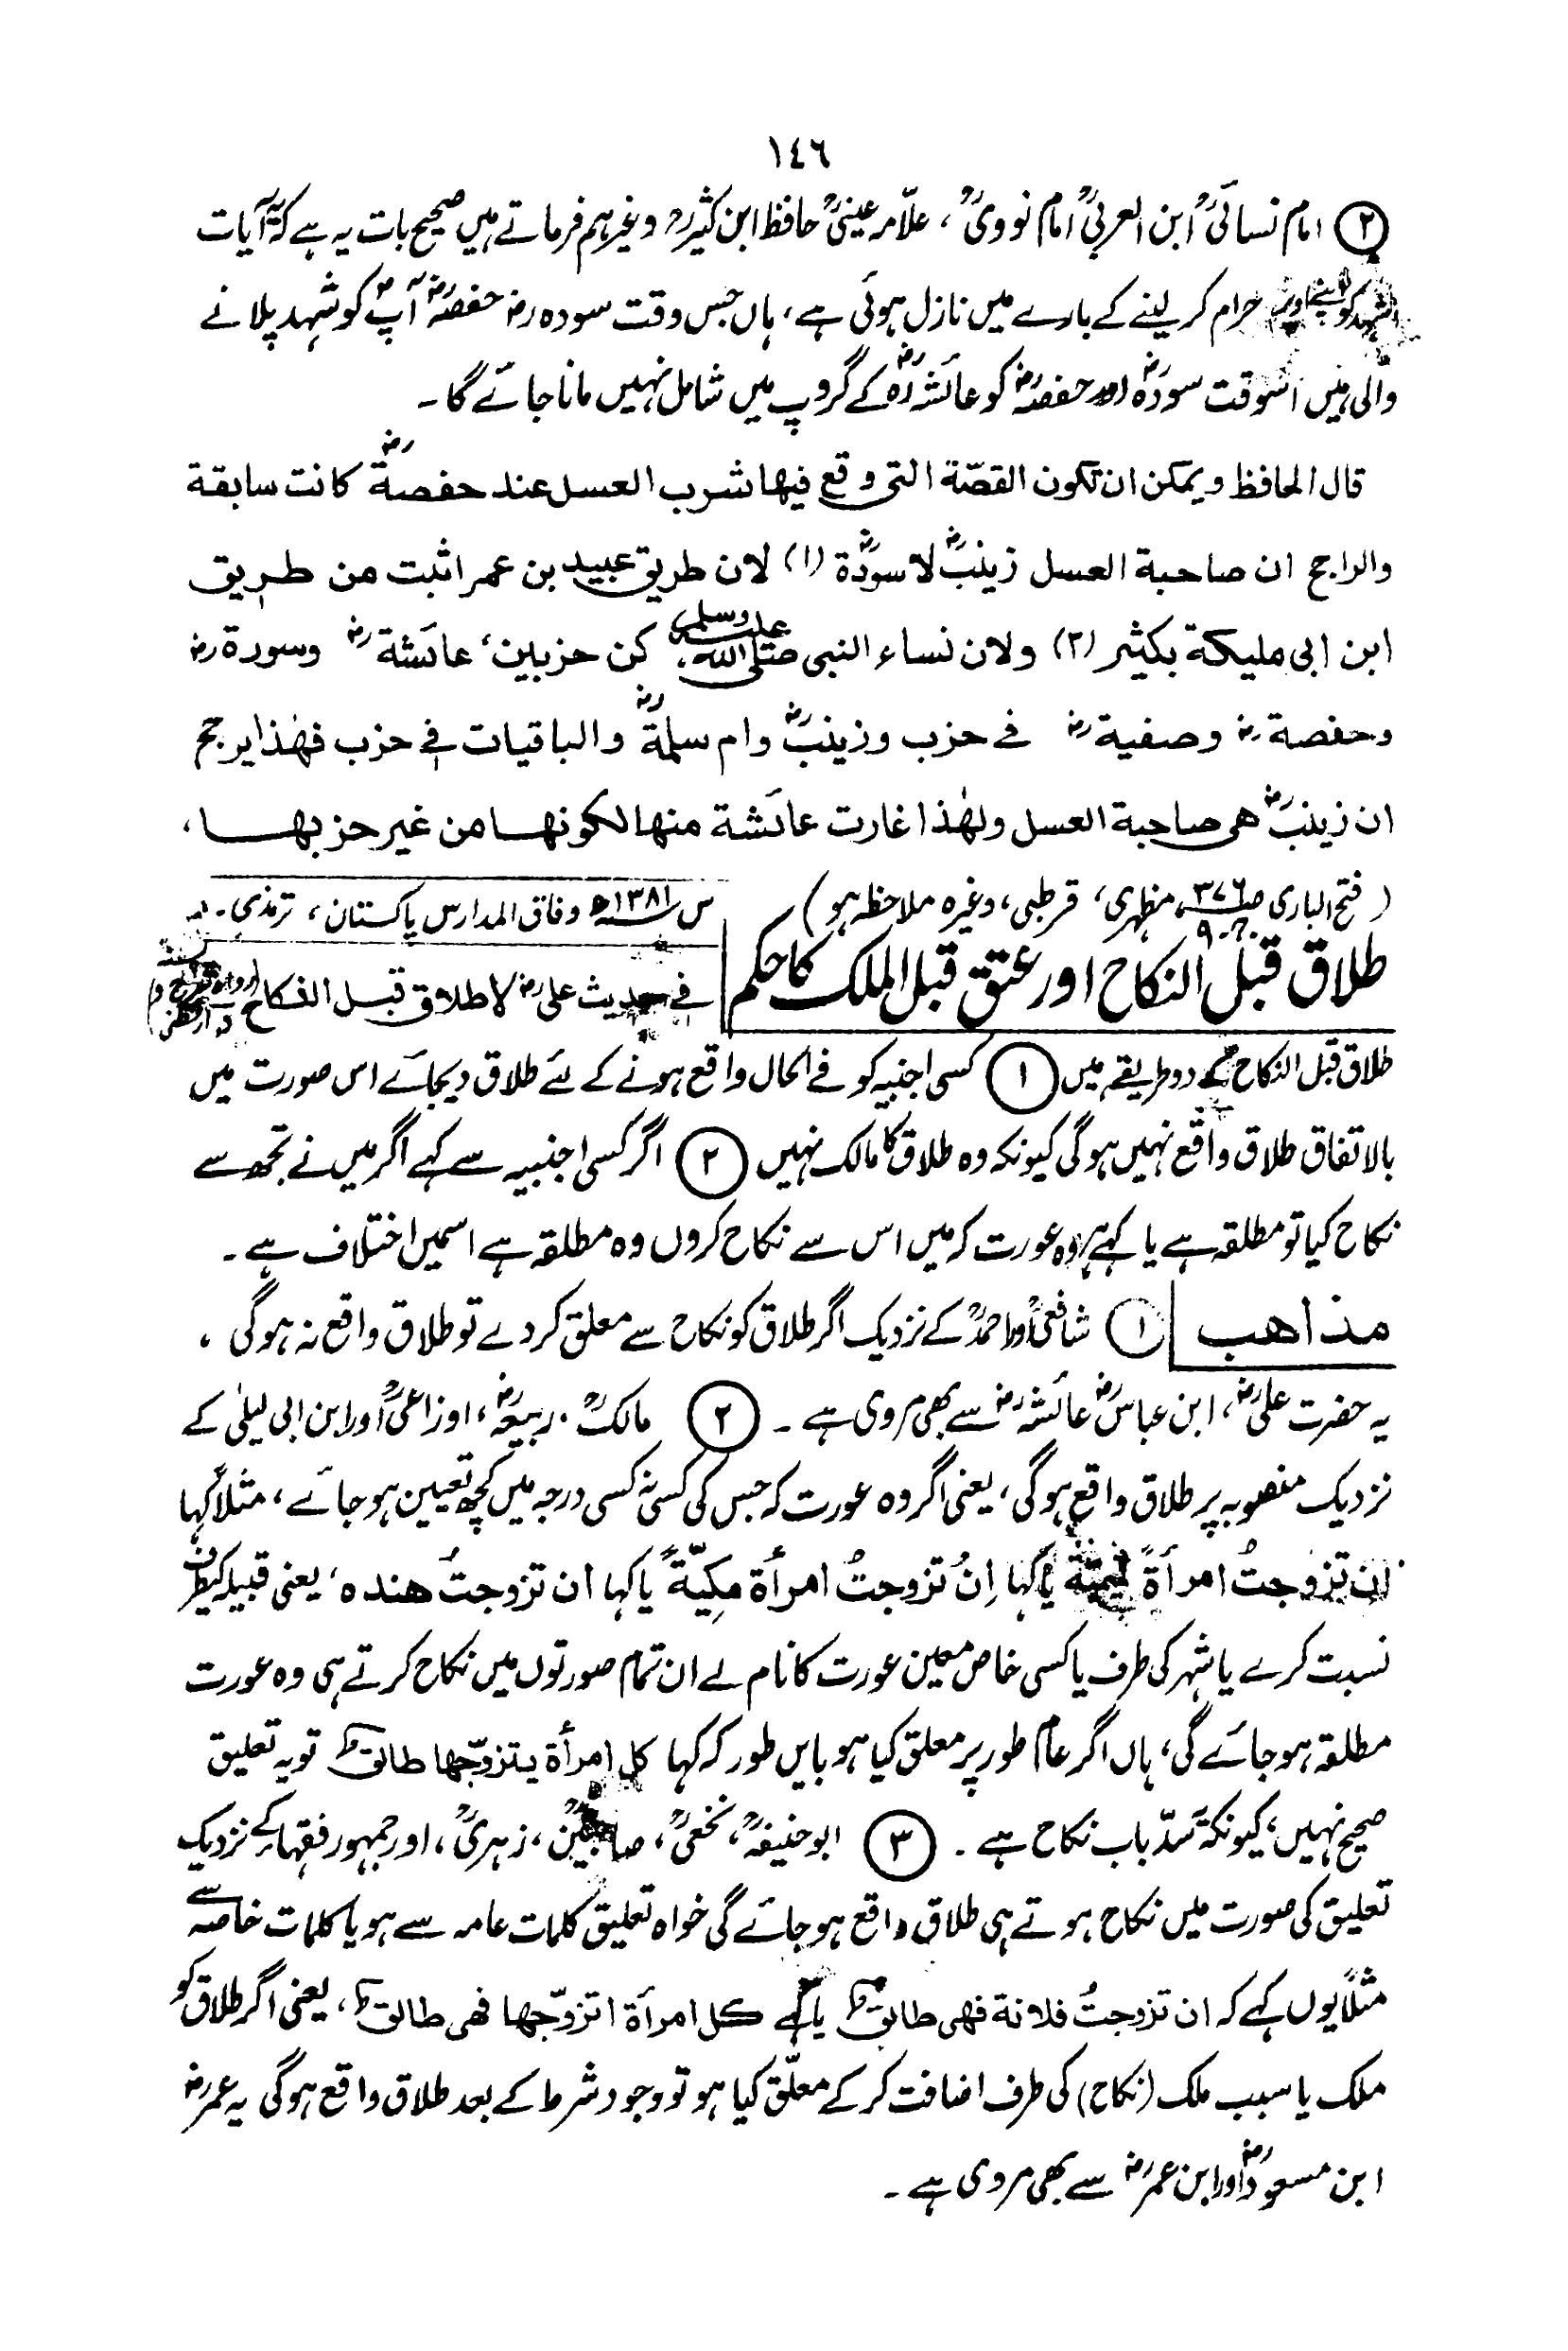 ١٤٦
② امام نسائیؒ ابن العربیؒ امام نوویؒ، علّامہ عینیؒ حافظ ابن کثیرؒ وغیرہم فرماتے ہیں صحیح بات یہ ہے کہ یہ آیات
شہد کو اپنے اوپر حرام کر لینے کے بارے میں نازل ہوئی ہے، ہاں جس وقت سودہ رض حفصہ رض آپؐ کو شہد پلانے
والی ہیں اسوقت سودہ رض اور حفصہ رض کو عائشہ رض کے گروپ میں شامل نہیں مانا جائے گا۔
قال الحافظ ویمکن ان تکون القصّة التی وقع فیها شرب العسل عند حفصة رض کانت سابقة
والراجح ان صاحبة العسل زینب رض لا سودة رض (۱) لان طریق عبید بن عمر اثبت من طریق
ابن ابی ملیکة بکثیر (۲) ولان نساء النبی صلی الله علیہ وسلم کن حزبین، عائشة رض وسودة رض
وحفصة رض وصفیة رض فی حزب وزینب رض وام سلمة رض والباقیات فی حزب فهٰذا یرجح
ان زینب رض هی صاحبة العسل ولهٰذا غارت عائشة منها لکونها من غیر حزبها،
(فتح الباری ص ۳۷۶ ج ۹، مظہری، قرطبی، وغیرہ ملاحظہ ہو)
س ۱۳۸۱ھ وفاق المدارس پاکستان، ترمذی۔
طلاق قبل النکاح اور عتق قبل الملک کا حکم
فی حدیث علی رض لا طلاق قبل النکاح
طلاق قبل النکاح کے دو طریقے ہیں ① کسی اجنبیہ کو فے الحال واقع ہونے کے لئے طلاق دیجائے اس صورت میں
بالاتفاق طلاق واقع نہیں ہوگی کیونکہ وہ طلاق کا مالک نہیں ② اگر کسی اجنبیہ سے کہے اگر میں نے تجھ سے
نکاح کیا تو مطلقہ ہے یا کہے ہر وہ عورت کہ میں اس سے نکاح کروں وہ مطلقہ ہے اسمیں اختلاف ہے۔
مذاهب ① شافعیؒ اور احمدؒ کے نزدیک اگر طلاق کو نکاح سے معلق کر دے تو طلاق واقع نہ ہوگی،
یہ حضرت علی رض، ابن عباس رض عائشہ رض سے بھی مروی ہے۔ ② مالکؒ، ربیعہ رض، اوزاعیؒ اور ابن ابی لیلیٰ کے
نزدیک منصوبہ پر طلاق واقع ہوگی، یعنی اگر وہ عورت کہ جس کی کسی نہ کسی درجہ میں کچھ تعیین ہو جائے، مثلاً کہا
ان تزوجتُ امرأةً یا کہا اِنْ تزوجتُ امرأة مکیّةً یا کہا ان تزوجتُ هنده، یعنی قبیلہ کیطرف
نسبت کرے یا شہر کی طرف یا کسی خاص معین عورت کا نام لے ان تمام صورتوں میں نکاح کرتے ہی وہ عورت
مطلقہ ہو جائے گی، ہاں اگر عام طور پر معلق کیا ہو بایں طور کہ کہا کل امرأة یتزوّجها طالقٌ تو یہ تعلیق
صحیح نہیں، کیونکہ سدّ باب نکاح ہے۔ ③ ابو حنیفہؒ، نخعیؒ، صاحبینؒ، زہریؒ، اور جمہور فقہاء کے نزدیک
تعلیق کی صورت میں نکاح ہوتے ہی طلاق واقع ہو جائے گی خواہ تعلیق کلمات عامہ سے ہو یا کلمات خاصہ سے
مثلاً یوں کہے کہ ان تزوجتُ فلانة فهی طالقٌ یا کہے کل امرأة اتزوّجها فهی طالقٌ، یعنی اگر طلاق کو
ملک یا سبب ملک (نکاح) کی طرف اضافت کر کے معلّق کیا ہو تو وجود شرط کے بعد طلاق واقع ہوگی یہ عمر رض
ابن مسعود رض اور ابن عمر رض سے بھی مروی ہے۔